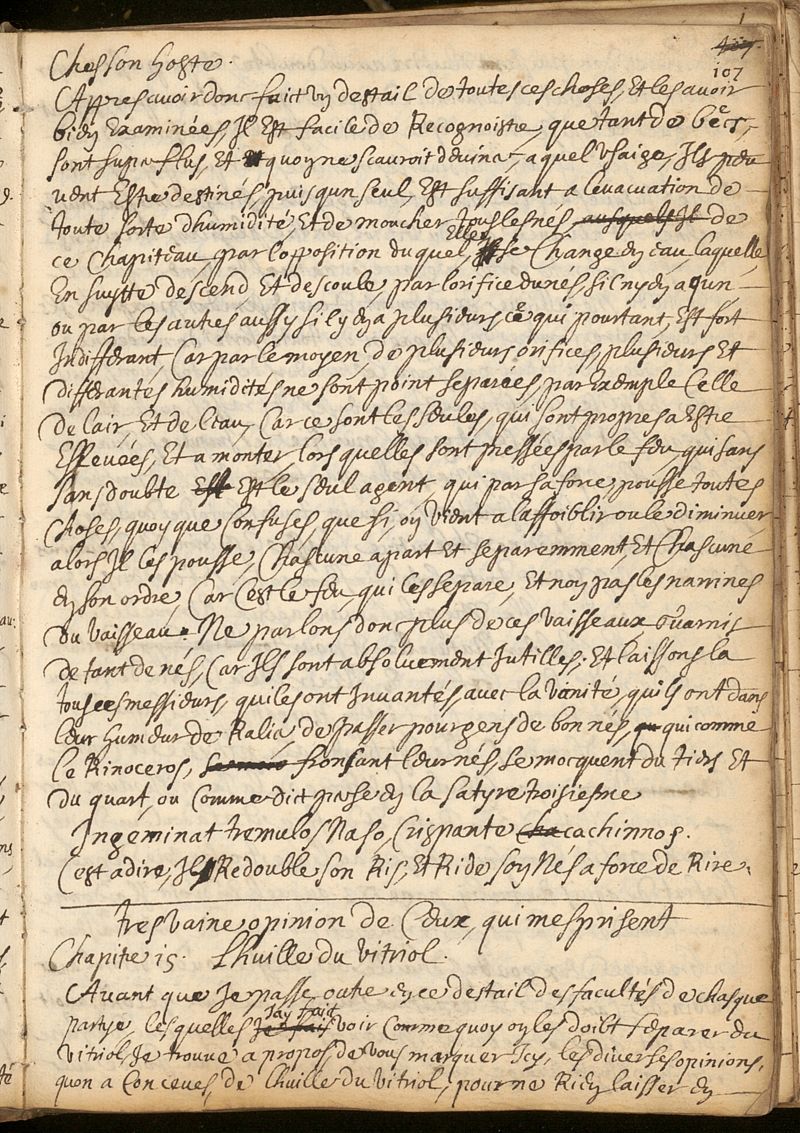 107
Ches son hoste.
Appres avoir donc faict un destail de toutes ces choses, Et les avoir
bien Examinées, Il Est facile de Recognoistre, que tant de becs,
sont superflus, Et quoy ne scauroit deviner, a quel usaige, Ils peu
vent Estre destinés, puis qun seul, Est suffisant a levacuation de
toute sorte dhumidité, Et de moucher tous les nés, ausquels Il de
ce Chapiteau, par lopposition du quel, Elle se Change en eau, laquelle
En suytte descend, Et descoule, par lorifice du nés, sil ny en a qun
ou par les autres aussy sil y en a plusieurs, ce qui pourtant, Est fort
Indifferant, Car par le moyen, de plusieurs orifices, plusieurs Et
differantes humidités ne sont point separées, par Exemple Celle
de lair, Et de leau, Car ce sont les seules, qui sont propres a Estre
Eslevées, Et a monter, lors quelles sont pressées par le feu, qui sans
sans doubte Est Est le seul agent, qui par sa force, pousse toutes
Choses, quoy que Confuses, que si, on vient a laffoiblir ou le diminuer,
alors Il les pousse, Chascune apart Et separemment, Et Chascune
en son ordre, Car Cest le feu, qui les separe, Et non pas les narines
du vaisseau. Ne parlons donc plus de ces vaisseaux guarnis
de tant de nés, Car Ils sont absoluement Inutilles. Et laissons la
tous ces messieurs, qui les ont Invantés, avec la vanité, quils ont dans
leur humeur de Passer pour gens de bon nés, qui comme
le Rinoceros, fronsant leur nés, se mocquent du tiers Et
du quart, ou Comme dict perse en la satyre troisiesme
Ingeminat tremulos Naso, Crispante cachinnos.
Cest a dire, Il Redouble son Ris, Et Ride son Nés a force de Rire.
tres vaine opinion de Ceux, qui mesprisent
Chapitre 15. Lhuille du vitriol.
Avant que Je passe outre en ce destail des facultés de chasque
partye, lesquelles Jay faict voir Comme quoy on les doibt separer du
vitriol, Je trouve a propos de vous marquer Icy, les diverses opinions,
quon a Conceues, de lhuille du vitriol, pour ne Rien laisser en